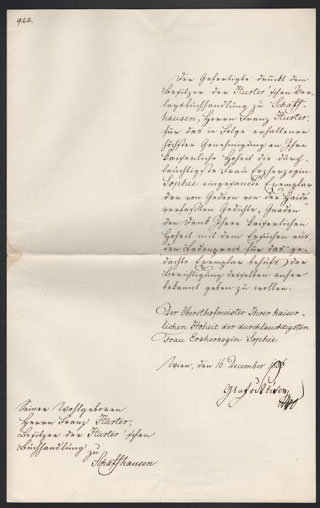 924.
Der Gefertigte drückt dem
Besitzer der Hurter'schen Ver-
lagsbuchhandlung zu Schaff-
hausen, Herrn Franz Hurter,
für das in Folge erhaltener
höchster Genehmigung an Ihre
kaiserliche Hoheit die durch-
lauchtigste Frau Erzherzogin
Sophie eingesandte Exemplar
der von Gedeon von der Heide
verfaßten Gedichte,
den Dank Ihrer kaiserlichen
Hoheit mit dem Ersuchen aus,
den Ladenpreis für das ge-
dachte Exemplar behufs der
Berichtigung desselben anher
bekannt geben zu wollen.
Der Obersthofmeister Ihrer kaiser-
lichen Hoheit der durchlauchtigsten
Frau Erzherzogin Sophie
Wien, den 16. December
Seiner Wohlgeboren
Herrn Franz Hurter,
Besitzer der Hurter'schen
Buchhandlung zu
Schaffhausen